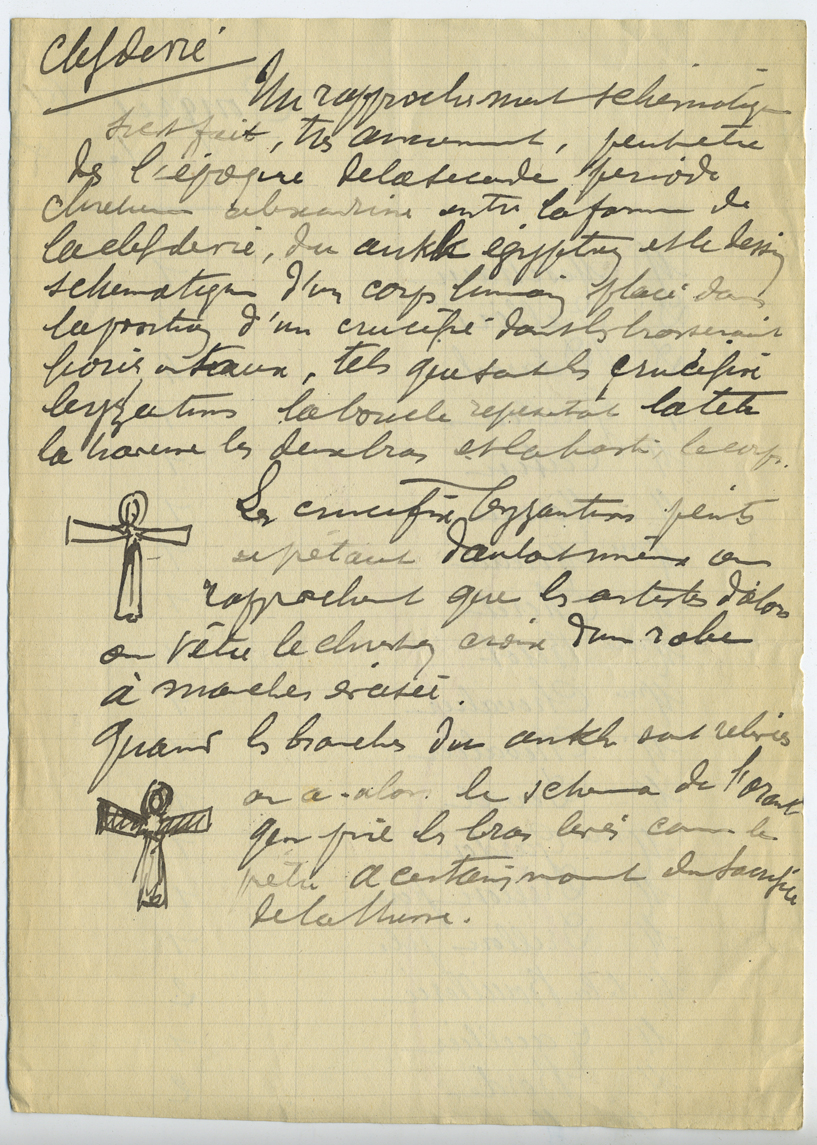 clef de vie
Un rapprochement schématique
s'est fait, très anciennement, peut etre
dès l'époque de la seconde periode
chretienne alexandrine entre la forme de
la clef de vie, du ankh égyptien et le dessin
schematique d'un corps humain placé dans
la position d'un crucifié dont les bras seraient
horizontaux, tels que sont les crucifix
byzantins la boucle representant la tete
la traverse les deux bras et la haste, le corps.
Les crucifix byzantins peints
se prêtant d'autant mieux au
rapprochement que les artistes d'alors
on vêtu le christ en croix d'un robe
à manches évasée.
Quand les branches du ankh sont relevées
on a alors le schema de l'orant
qui prie les bras levés comme le
prêtre a certains moment du Sacrifice
de la Messe.